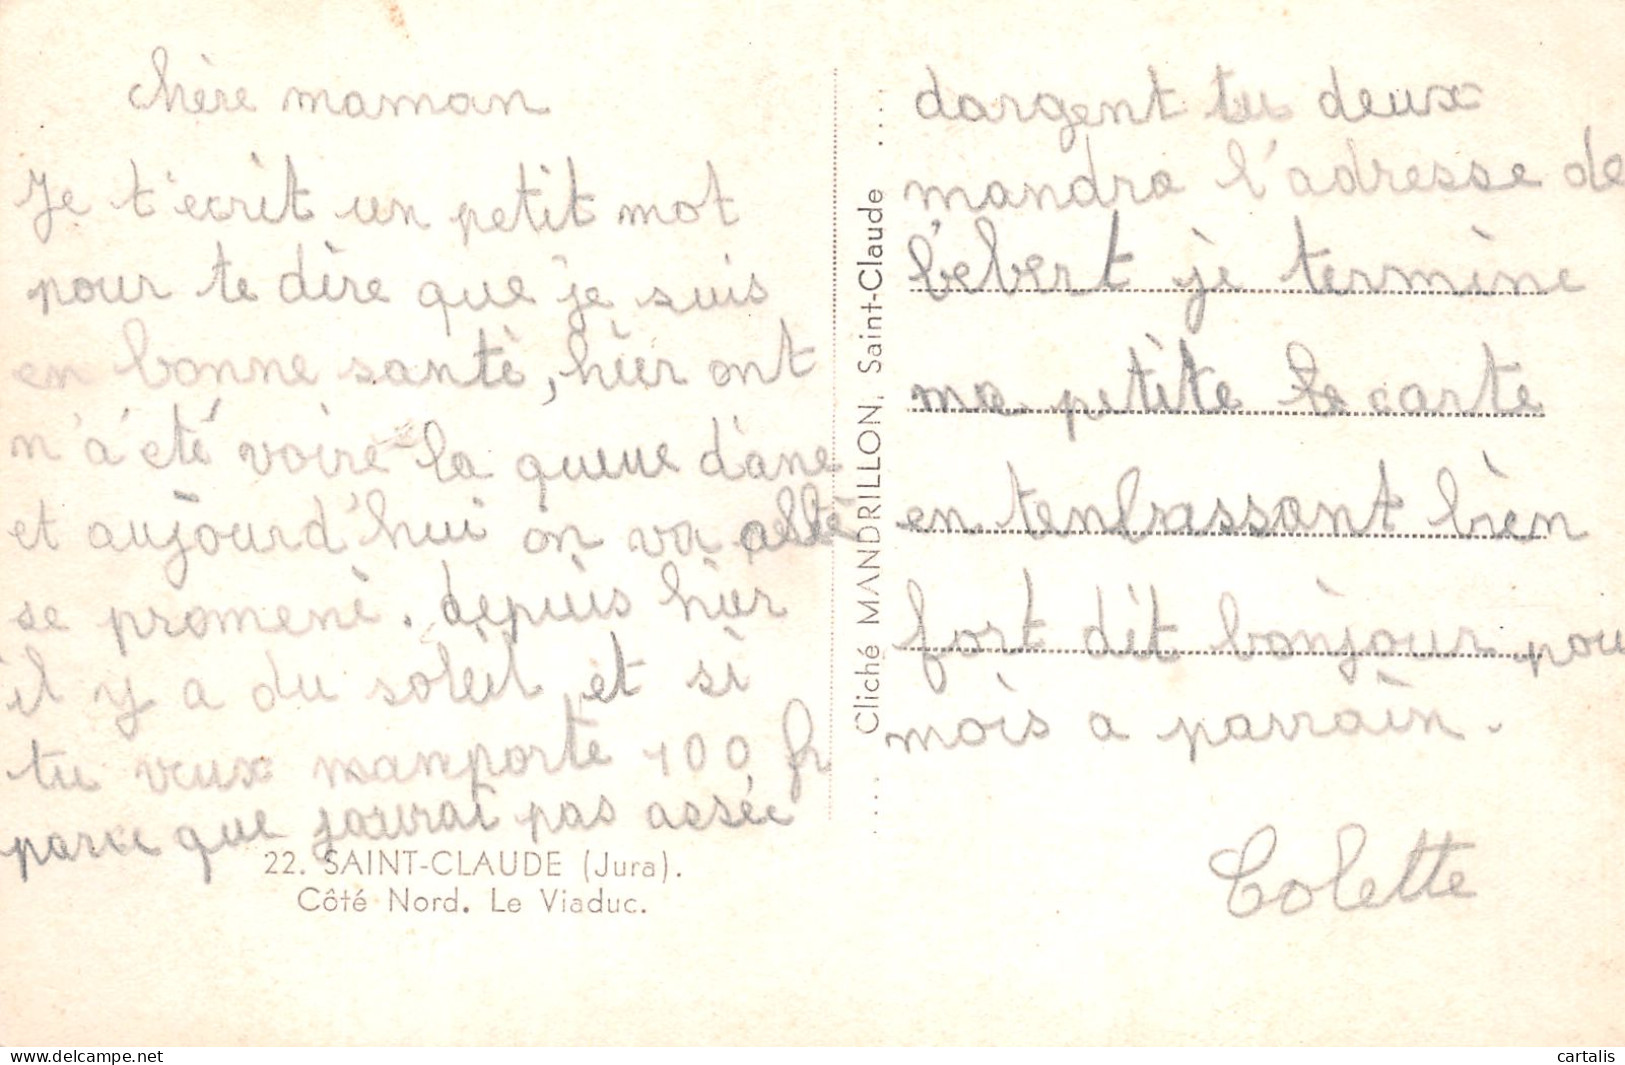 chère maman
Je t'ecrit un petit mot
pour te dire que je suis
en bonne santè, hier ont
n'a été voire la queue d'ane
et aujourd'hui on va allè
se promenè. depuis hier
il y a du soleil et si
tu veux manporte 100 fr
parce que jaurai pas assée
22. SAINT-CLAUDE (Jura).
Côté Nord. Le Viaduc.
Cliché MANDRILLON, Saint-Claude
dargent tu deux
mandra l'adresse de
bebert je termine
ma petite carte
en tenbrassant bien
fort dit bonjour pou
mois a parrain.
Colette
cartalis
www.delcampe.net